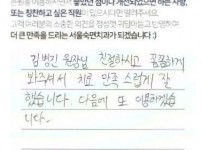 좋았던 점이나 개선되었으면 하는 사항,
또는 칭찬하고 싶은 직원이 있으시다면 알려주세요.
더 큰 만족을 드리는 서울숙면치과가 되겠습니다 :)
김병진 원장님 친절하시고 꼼꼼하게
봐주셔서 치료 만족스럽게 잘
했습니다. 다음에 또 이용하겠습
니다.